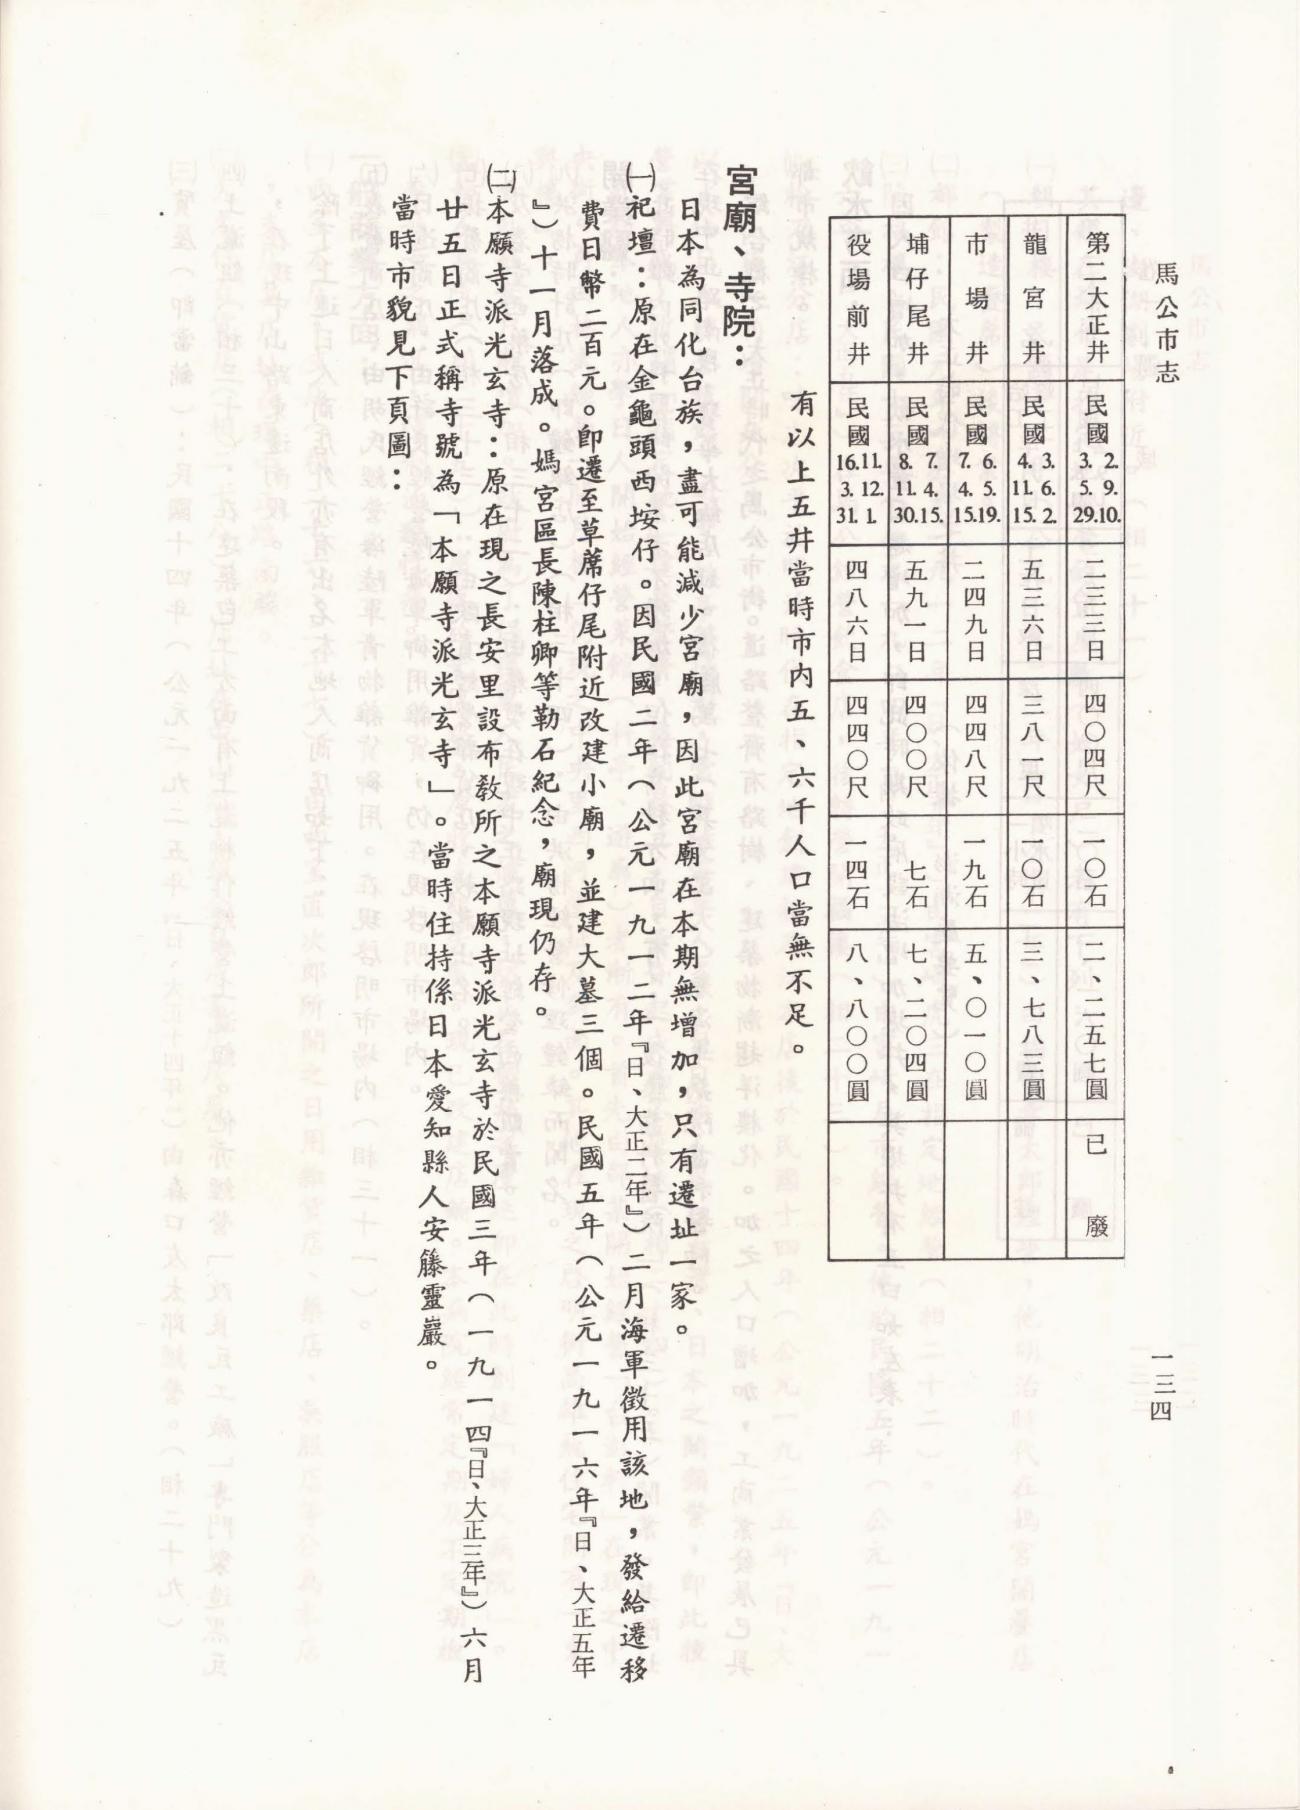 馬公市志
一三四
第二大正井 民國 3. 2. 5. 9. 29.10. 二三三日 四〇四尺 一〇石 二、二五七圓 已廢
龍宮井 民國 4. 3. 11. 6. 15. 2. 五三六日 三八一尺 一〇石 三、七八三圓
市場井 民國 7. 6. 4. 5. 15.19. 二四九日 四四八尺 一九石 五、〇一〇圓
埔仔尾井 民國 8. 7. 11. 4. 30.15. 五九一日 四〇〇尺 七石 七、二〇四圓
役場前井 民國 16.11. 3. 12. 31. 1. 四八六日 四四〇尺 一四石 八、八〇〇圓
有以上五井當時市內五、六千人口當無不足。
宮廟、寺院：
日本為同化台族，盡可能減少宮廟，因此宮廟在本期無增加，只有遷址一家。
㈠祀壇：原在金龜頭西垵仔。因民國二年（公元一九一二年『日、大正二年』）二月海軍徵用該地，發給遷移
費日幣二百元。即遷至草蓆仔尾附近改建小廟，並建大墓三個。民國五年（公元一九一六年『日、大正五年
』）十一月落成。媽宮區長陳柱卿等勒石紀念，廟現仍存。
㈡本願寺派光玄寺：原在現之長安里設布教所之本願寺派光玄寺於民國三年（一九一四『日、大正三年』）六月
廿五日正式稱寺號為「本願寺派光玄寺」。當時住持係日本愛知縣人安籐靈巖。
當時市貌見下頁圖：